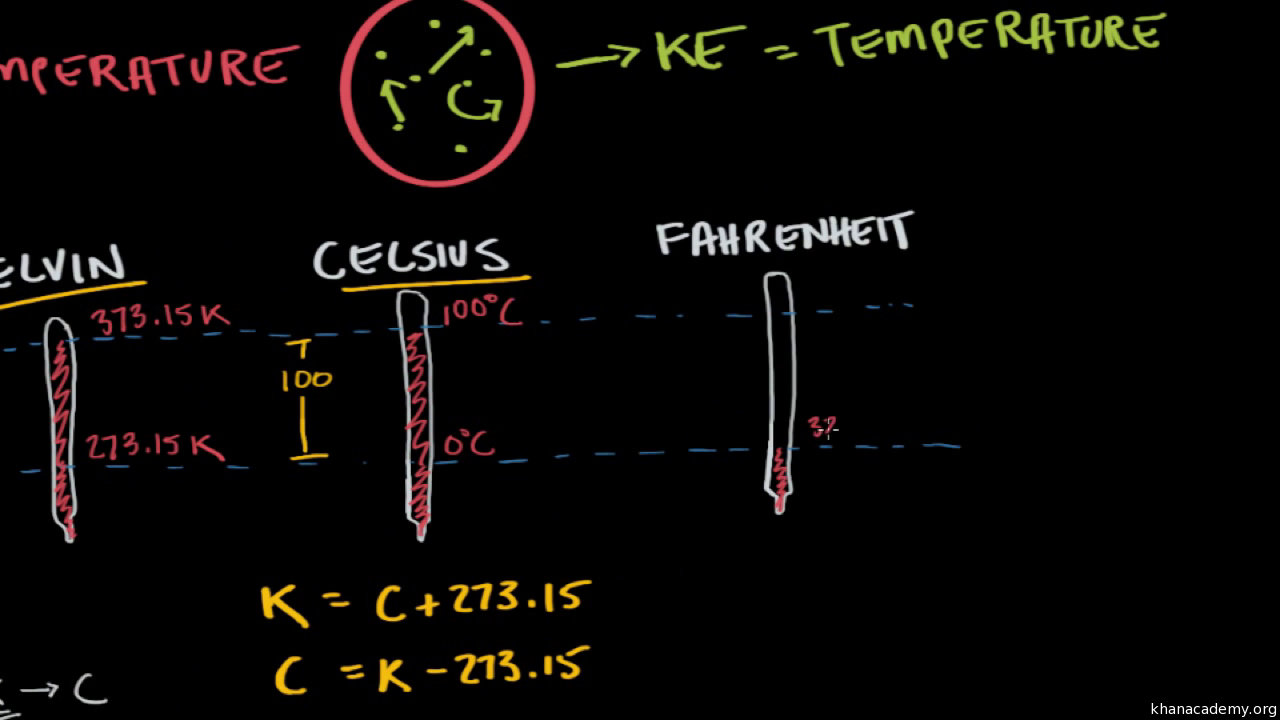 MPERATURE → KE = TEMPERATURE
ELVIN CELSIUS FAHRENHEIT
373.15 K 100°C
100
273.15 K 0°C 32
K = C + 273.15
C = K - 273.15
→ C
khanacademy.org